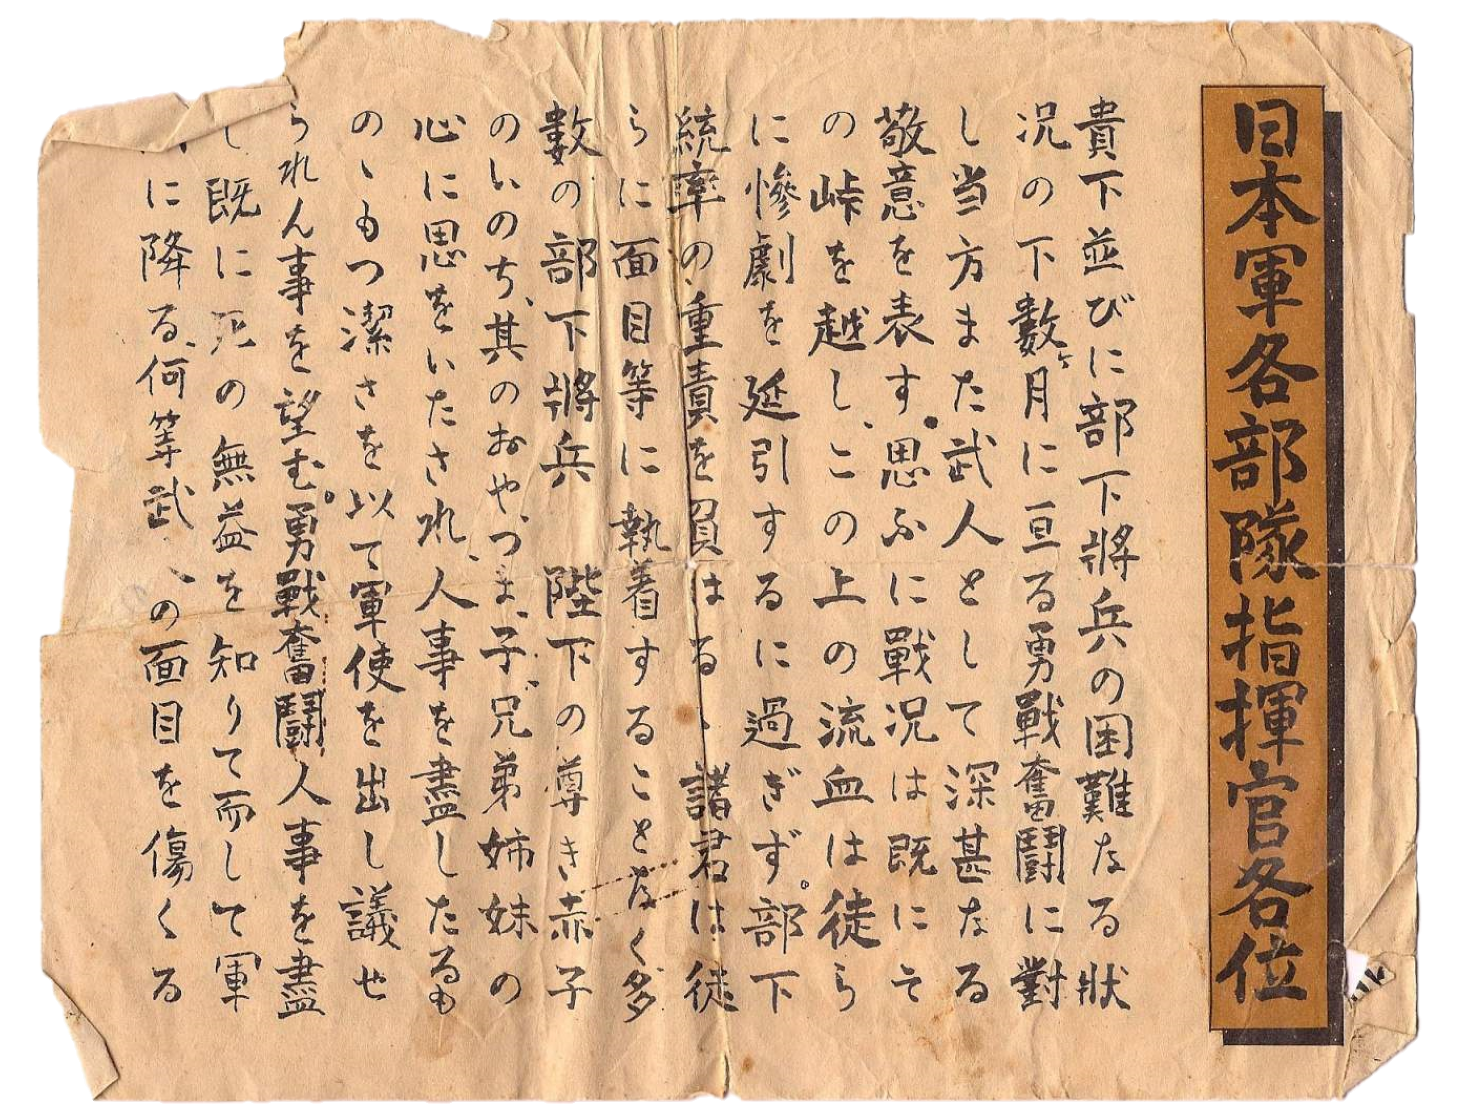 日本軍各部隊指揮官各位
貴下並びに部下將兵の困難なる狀
况の下數ヶ月に亘る勇戰奮鬪に對
し当方また武人として深甚なる
敬意を表す。思ふに戰况は既にそ
の峠を越し、この上の流血は徒ら
に慘劇を延引するに過ぎず。部下
統率の重責を負はるゝ諸君は徒
らに面目等に執着することなく多
數の部下將兵 陛下の尊き赤子
のいのち、其のおや、つま、子、兄弟姉妹の
心に思をいたされ、人事を盡したるも
のゝもつ潔さを以て軍使を出し議せ
られん事を望む。勇戰奮鬪人事を盡
し既に死の無益を知りて而して軍
に降る、何等武人の面目を傷くる